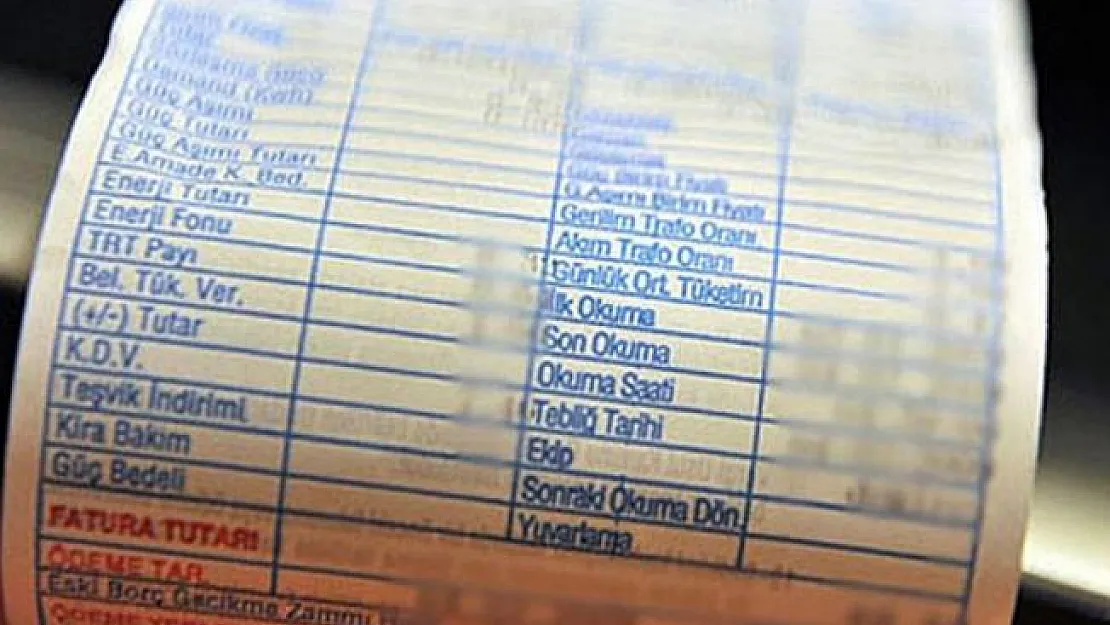 Tutar
Demand (Kwh)
Güç Aşımı
Güç Tutarı
Güç Aşımı Tutarı
E. Amade K. Bed.
Enerji Tutarı
Enerji Fonu
TRT Payı
Bel. Tük. Ver.
(+/-) Tutar
K.D.V.
Teşvik İndirimi
Kira Bakım
Güç Bedeli
FATURA TUTARI
ÖDEME TAR.
Eski Borç Gecikme Zammı
Güç Birim Fiyatı
G. Aşımı Birim Fiyatı
Gerilim Trafo Oranı
Akım Trafo Oranı
Günlük Ort. Tüketim
İlk Okuma
Son Okuma
Okuma Saati
Tebliğ Tarihi
Ekip
Sonraki Okuma Dön.
Yuvarlama